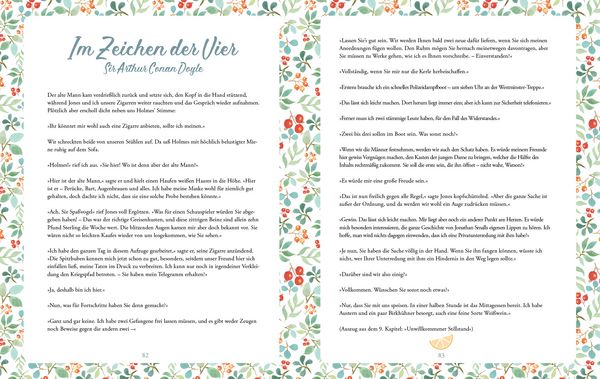 Im Zeichen der Vier
Sir Arthur Conan Doyle
Der alte Mann kam verdrießlich zurück und setzte sich, den Kopf in die Hand stützend,
während Jones und ich unsere Zigarren weiter rauchten und das Gespräch wieder aufnahmen.
Plötzlich aber erscholl dicht neben uns Holmes' Stimme:
«Ihr könntet mir wohl auch eine Zigarre anbieten, sollte ich meinen.»
Wir schreckten beide von unseren Stühlen auf. Da saß Holmes mit höchlich belustigter Mie-
ne ruhig auf dem Sofa.
«Holmes!» rief ich aus. «Sie hier! Wo ist denn aber der alte Mann?»
«Hier ist der alte Mann,» sagte er und hielt einen Haufen weißen Haares in die Höhe. «Hier
ist er – Perücke, Bart, Augenbrauen und alles. Ich habe meine Maske wohl für ziemlich gut
gehalten, doch dachte ich nicht, dass sie eine solche Probe bestehen könnte.»
«Ach, Sie Spaßvogel!» rief Jones voll Ergötzen. «Was für einen Schauspieler würden Sie abge-
geben haben! – Das war der richtige Greisenhusten, und diese zittrigen Beine sind allein zehn
Pfund Sterling die Woche wert. Die blitzenden Augen kamen mir aber doch bekannt vor. Sie
wären nicht so leichten Kaufes wieder von uns losgekommen, wie Sie sehen.»
«Ich habe den ganzen Tag in diesem Aufzuge gearbeitet,» sagte er, seine Zigarre anzündend.
«Die Spitzbuben kennen mich jetzt schon zu gut, besonders, seitdem unser Freund hier sich
einfallen ließ, meine Taten im Druck zu verbreiten. Ich kann nur noch in irgendeiner Verklei-
dung den Kriegspfad betreten. – Sie haben mein Telegramm erhalten?»
«Ja, deshalb bin ich hier.»
«Nun, was für Fortschritte haben Sie denn gemacht?»
«Ganz und gar keine. Ich habe zwei Gefangene frei lassen müssen, und es gibt weder Zeugen
noch Beweise gegen die andern zwei –»
82
«Lassen Sie's gut sein. Wir werden Ihnen bald zwei neue dafür liefern, wenn Sie sich meinen
Anordnungen fügen wollen. Den Ruhm mögen Sie hernach meinetwegen davontragen, aber
Sie müssen zu Werke gehen, wie ich es Ihnen vorschreibe. – Einverstanden?»
«Vollständig, wenn Sie mir nur die Kerle herbeischaffen.»
«Erstens brauche ich ein schnelles Polizeidampfboot – um sieben Uhr an der Westminster-Treppe.»
«Das lässt sich leicht machen. Dort herum liegt immer eins; aber ich kann zur Sicherheit telefonieren.»
«Ferner muss ich zwei stämmige Leute haben, für den Fall des Widerstandes.»
«Zwei bis drei sollen im Boot sein. Was sonst noch?»
«Wenn wir die Männer festnehmen, werden wir auch den Schatz haben. Es würde meinem Freunde
hier gewiss Vergnügen machen, den Kasten der jungen Dame zu bringen, welcher die Hälfte des
Inhalts rechtmäßig zukommt. Sie soll die erste sein, die ihn öffnet – nicht wahr, Watson?»
«Es würde mir eine große Freude sein.»
«Das ist nun freilich gegen alle Regel,» sagte Jones kopfschüttelnd. «Aber die ganze Sache ist
außer der Ordnung, und da werden wir wohl ein Auge zudrücken müssen.»
«Gewiss. Das lässt sich leicht machen. Mir liegt aber noch ein andrer Punkt am Herzen. Es würde
mich besonders interessieren, die ganze Geschichte von Jonathan Smalls eigenen Lippen zu hören. Ich
hoffe, man wird nichts dagegen einwenden, dass ich eine Privatunterredung mit ihm habe?»
«Je nun, Sie haben die Sache völlig in der Hand. Wenn Sie ihn fangen können, wüsste ich
nicht, wer Ihrer Unterredung mit ihm ein Hindernis in den Weg legen sollte.»
«Darüber sind wir also einig?»
«Vollkommen. Wünschen Sie sonst noch etwas?»
«Nur, dass Sie mit uns speisen. In einer halben Stunde ist das Mittagessen bereit. Ich habe
Austern und ein paar Birkhühner besorgt, auch eine feine Sorte Weißwein.»
(Auszug aus dem 9. Kapitel: «Unwillkommener Stillstand»)
83